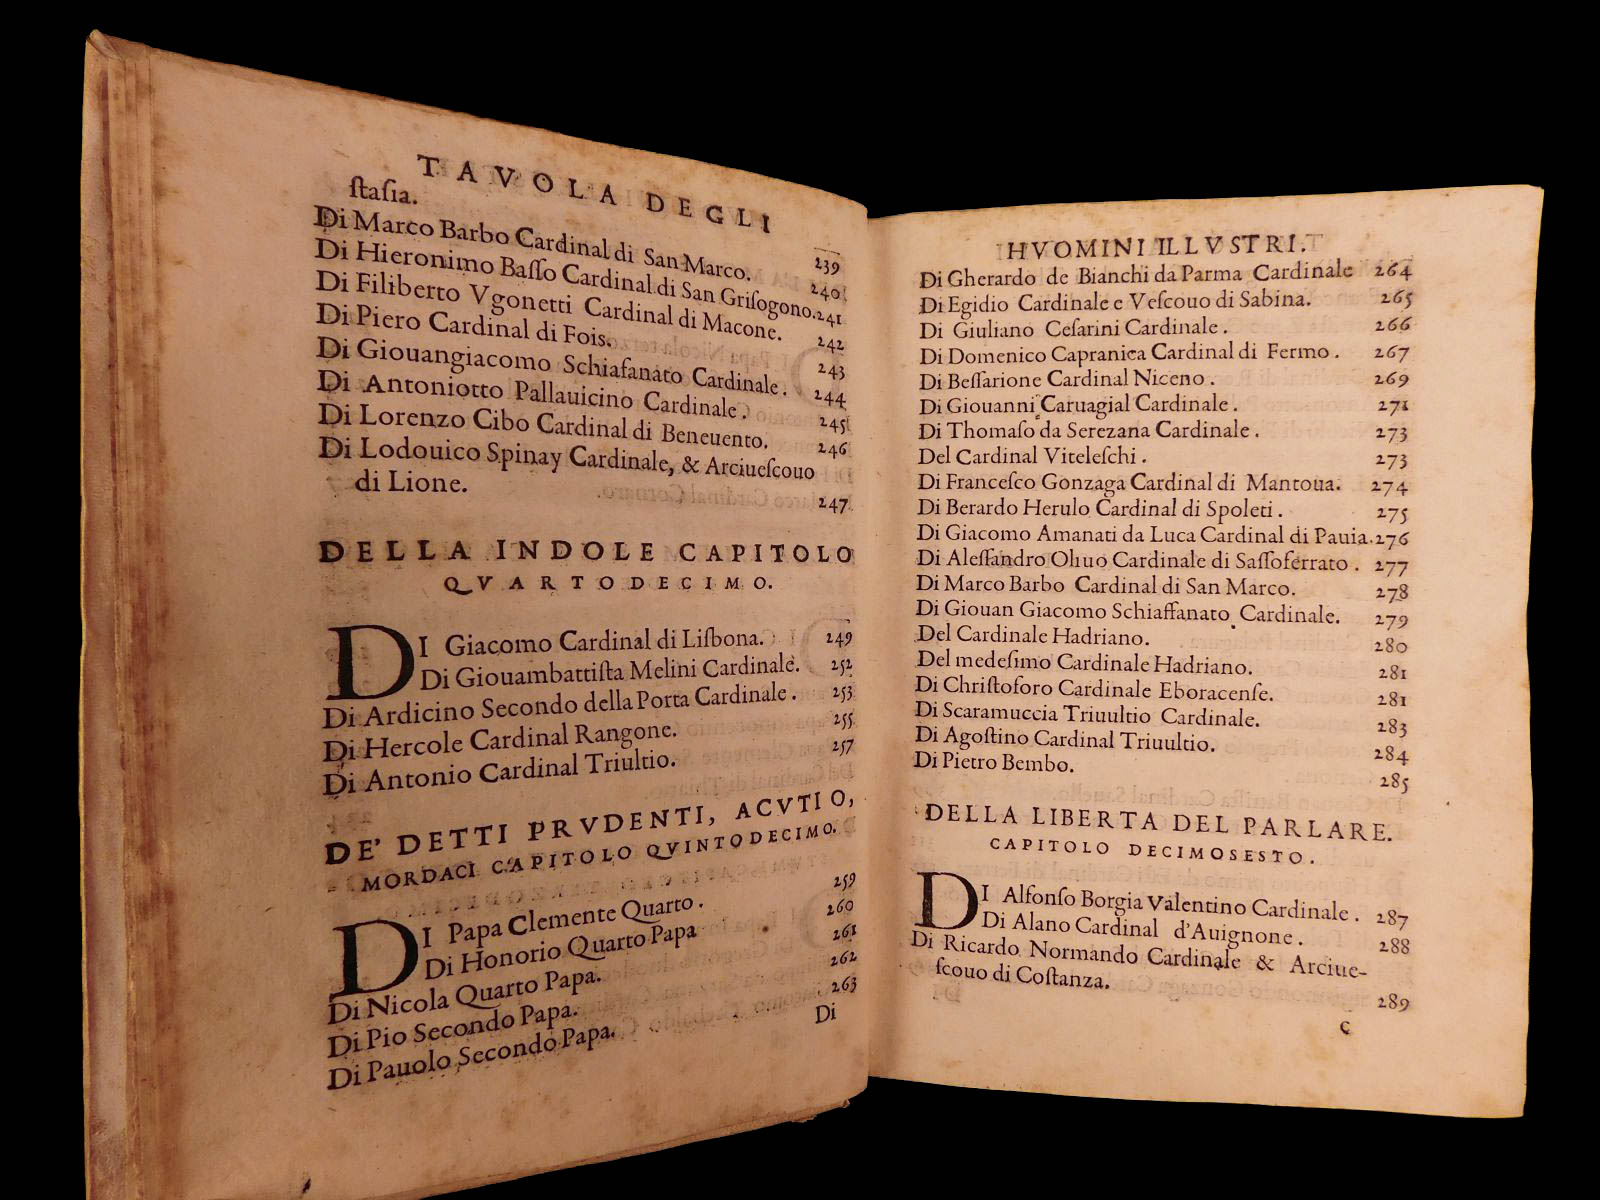 TAVOLA DEGLI
ſtaſia. 239
Di Marco Barbo Cardinal di San Marco. 240
Di Hieronimo Baſſo Cardinal di San Griſogono. 241
Di Filiberto Vgonetti Cardinal di Macone. 242
Di Piero Cardinal di Fois. 243
Di Giouangiacomo Schiafanato Cardinale. 244
Di Antoniotto Pallauicino Cardinale. 245
Di Lorenzo Cibo Cardinal di Beneuento. 246
Di Lodouico Spinay Cardinale, & Arciueſcouo
di Lione. 247
DELLA INDOLE CAPITOLO
QVARTODECIMO.
DI Giacomo Cardinal di Liſbona. 249
Di Giouambattiſta Melini Cardinale. 252
Di Ardicino Secondo della Porta Cardinale. 253
Di Hercole Cardinal Rangone. 255
Di Antonio Cardinal Triultio. 257
DE' DETTI PRVDENTI, ACVTIO,
MORDACI CAPITOLO QVINTODECIMO.
DI Papa Clemente Quarto. 259
Di Honorio Quarto Papa 260
Di Nicola Quarto Papa. 261
Di Pio Secondo Papa. 262
Di Pauolo Secondo Papa. 263
Di
HVOMINI ILLVSTRI.
Di Gherardo de Bianchi da Parma Cardinale 264
Di Egidio Cardinale e Veſcouo di Sabina. 265
Di Giuliano Ceſarini Cardinale. 266
Di Domenico Capranica Cardinal di Fermo. 267
Di Beſſarione Cardinal Niceno. 269
Di Giouanni Caruagial Cardinale. 271
Di Thomaſo da Serezana Cardinale. 273
Del Cardinal Viteleſchi. 273
Di Franceſco Gonzaga Cardinal di Mantoua. 274
Di Berardo Herulo Cardinal di Spoleti. 275
Di Giacomo Amanati da Luca Cardinal di Pauia. 276
Di Aleſſandro Oliuo Cardinale di Saſſoferrato. 277
Di Marco Barbo Cardinal di San Marco. 278
Di Giouan Giacomo Schiaffanato Cardinale. 279
Del Cardinale Hadriano. 280
Del medeſimo Cardinale Hadriano. 281
Di Chriſtoforo Cardinale Eboracenſe. 281
Di Scaramuccia Triuultio Cardinale. 283
Di Agoſtino Cardinal Triuultio. 284
Di Pietro Bembo. 285
DELLA LIBERTA DEL PARLARE.
CAPITOLO DECIMOSESTO.
DI Alfonſo Borgia Valentino Cardinale. 287
Di Alano Cardinal d'Auignone. 288
Di Ricardo Normando Cardinale & Arciue-
ſcouo di Coſtanza. 289
C